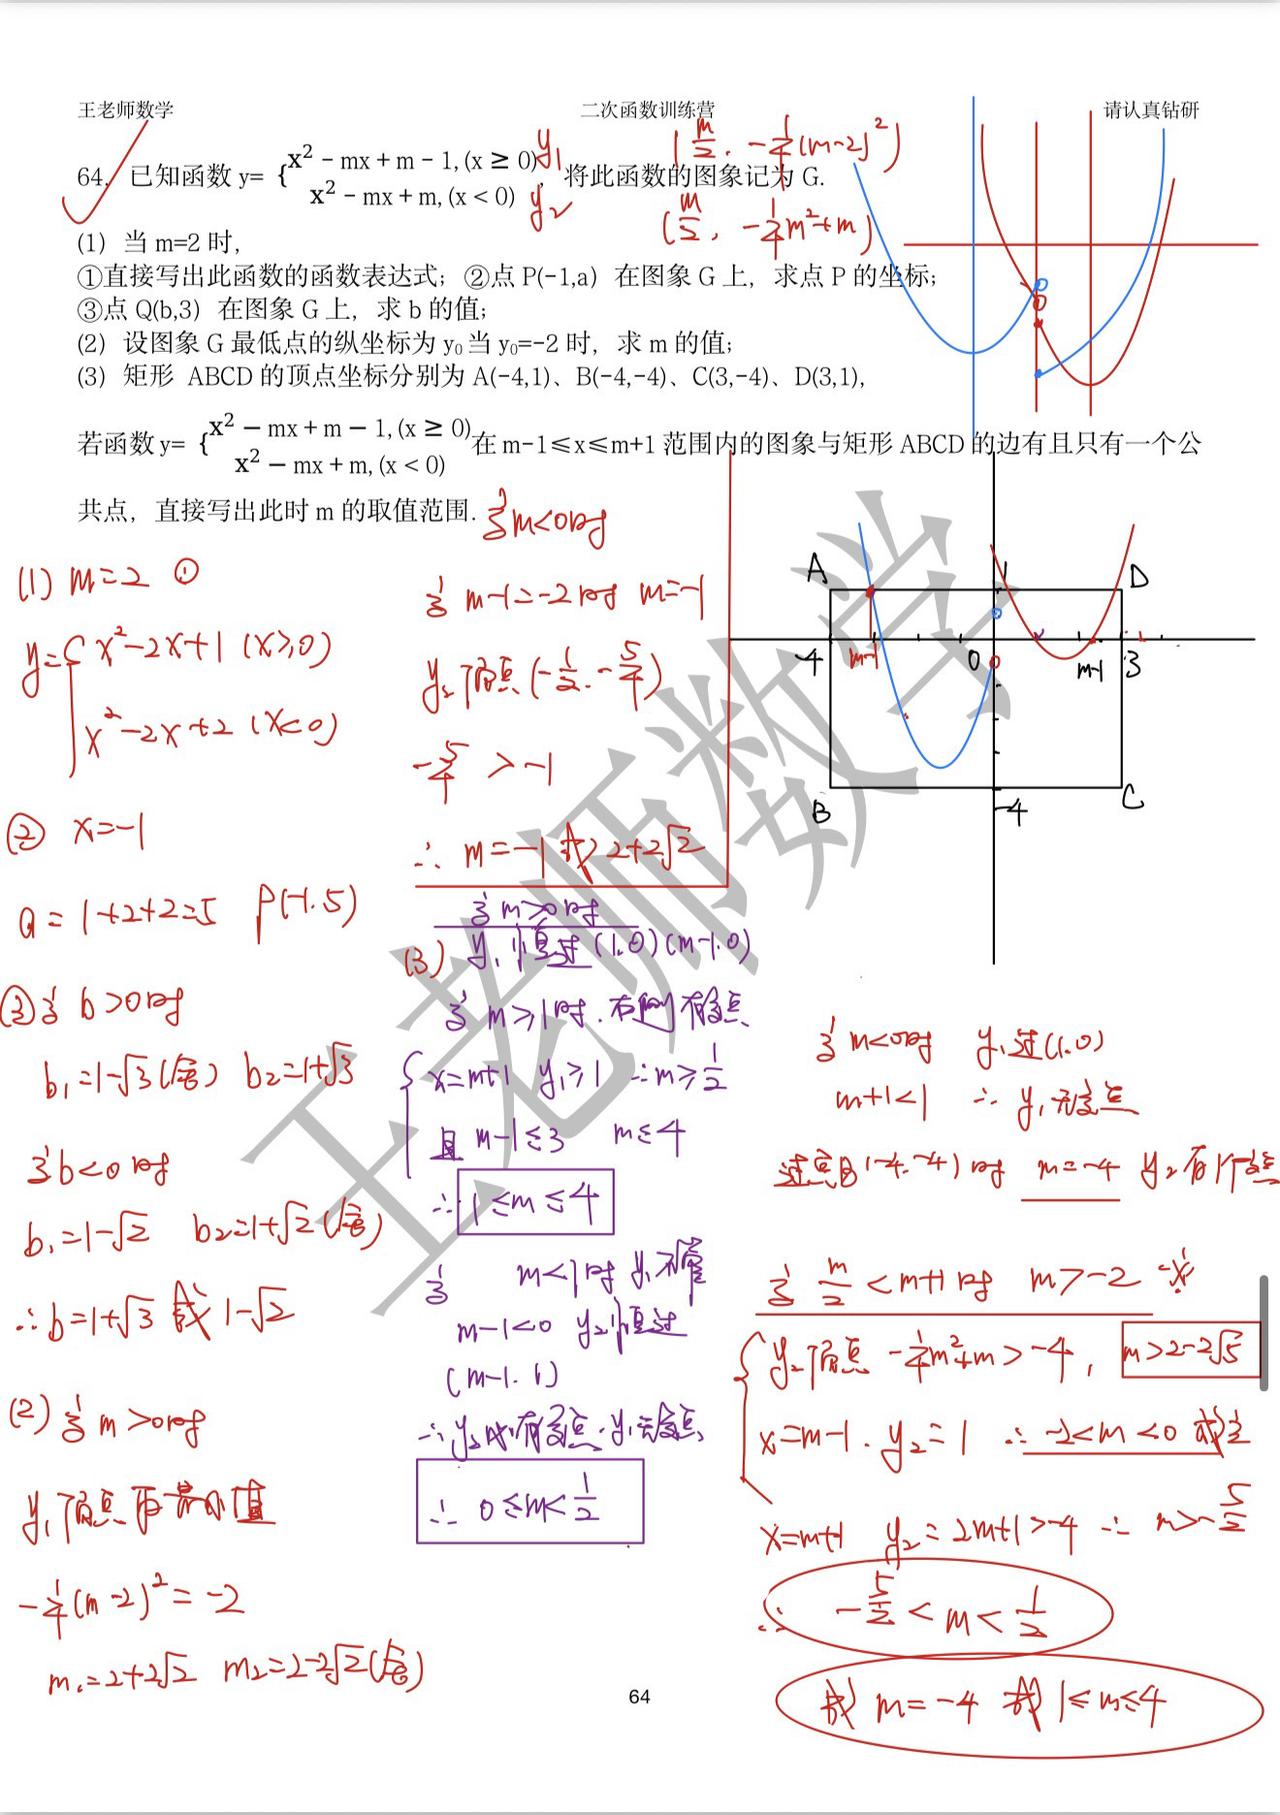 王老师数学 二次函数训练营 请认真钻研
64, 已知函数 y= {x² - mx + m - 1, (x ≥ 0) y₁
x² - mx + m, (x < 0) y₂ , 将此函数的图象记为 G.
(m/2, -1/4(m-2)²)
(m/2, -1/4m²+m)
(1) 当 m=2 时,
①直接写出此函数的函数表达式; ②点 P(-1,a) 在图象 G 上, 求点 P 的坐标;
③点 Q(b,3) 在图象 G 上, 求 b 的值;
(2) 设图象 G 最低点的纵坐标为 y₀ 当 y₀=-2 时, 求 m 的值;
(3) 矩形 ABCD 的顶点坐标分别为 A(-4,1)、B(-4,-4)、C(3,-4)、D(3,1),
若函数 y= {x² - mx + m - 1, (x ≥ 0)
x² - mx + m, (x < 0) 在 m-1≤x≤m+1 范围内的图象与矩形 ABCD 的边有且只有一个公
共点, 直接写出此时 m 的取值范围.
(1) m=2 ①
y={x²-2x+1 (x≥0)
x²-2x+2 (x<0)
② x=-1
a=1+2+2=5 P(-1.5)
③当 b>0时
b₁=1-√3(舍) b₂=1+√3
当b<0时
b₁=1-√2 b₂=1+√2(舍)
∴b=1+√3 或 1-√2
(2) 当 m>0时
y₁顶点取最小值
-1/4(m-2)²=-2
m₁=2+2√2 m₂=2-2√2(舍)
当m<0时
当 m-1=-2时 m=-1
y₂顶点(-1/2.-5/4)
-5/4 > -1
∴ m=-1或2+2√2
当m≥0时
(3) y₁恒过(1.0)(m-1.0)
当 m≥1时.右侧有交点
x=m+1 y₁≥1 ∴m≥1/2
且 m-1≤3 m≤4
∴ 1≤m≤4
当 m<1时 y₁不管
m-1<0 y₂恒过
(m-1.1)
∴y₂必有交点.y₁无交点
∴ 0≤m<1/2
A 1 D
-4 m-1 0 m-1 3
B -4 C
当m<0时 y₁过(1.0)
m+1<1 ∴ y₁无交点
过点B(-4.-4)时 m=-4 y₂有1个交点
当 m/2 <m+1时 m>-2
y₂顶点 -1/4m²+m>-4, m>2-2√5
x=m-1. y₂=1 ∴ -2<m<0 成立
x=m+1 y₂=2m+1>-4 ∴ m>-5/2
∴ -5/2 < m < 1/2
或 m=-4 或 1≤m≤4
64
王老师数学